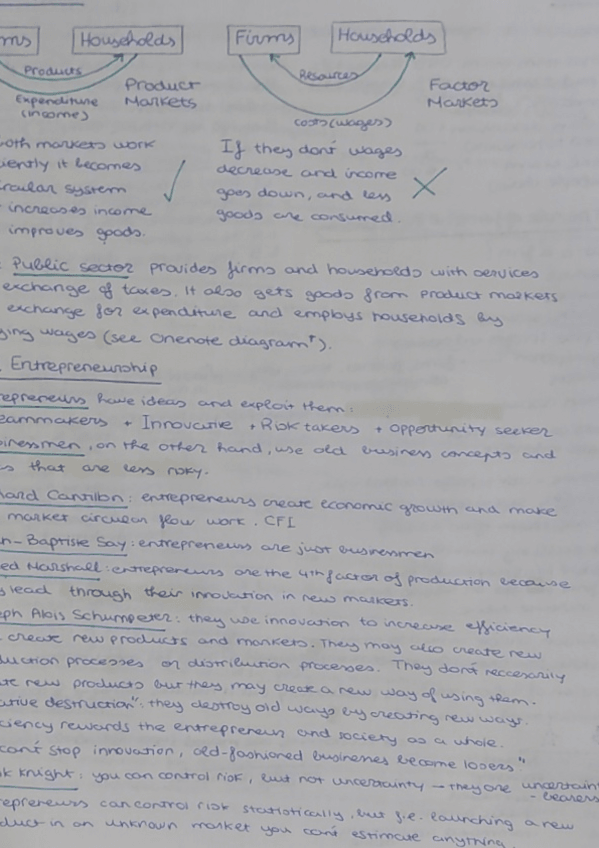 ms Households Firms Households
Products Resources
Expenditure (income) Product Markets
costs (wages) Factor Markets
both markets work
iently it becomes
rcular system
increases income
improves goods.
If they don't wages
decrease and income
goes down, and less
goods are consumed.
Public sector provides firms and households with services
exchange of taxes. It also gets goods from product markets
exchange for expenditure and employs households by
ging wages (see Onenote diagram*).
Entrepreneurship
repreneurs have ideas and exploit them:
eammakers + Innovative + Risk takers + opportunity seeker
sinessmen, on the other hand, use old business concepts and
s that are less risky.
hard Cantillon: entrepreneurs create economic growth and make
market circular flow work. CFI
n-Baptiste Say: entrepreneurs are just businessmen
ed Marshall: entrepreneurs are the 4th factor of production because
y lead through their innovation in new markets.
eph Alois Schumpeter: they use innovation to increase efficiency
create new products and markets. They may also create new
duction processes or distribution processes. They don't necessarily
ate new products but they may create a new way of using them.
ative destruction": they destroy old ways by creating new ways.
ciency rewards the entrepreneur and society as a whole.
can't stop innovation, old-fashioned businesses become losers."
k Knight: you can control risk, but not uncertainty → they are uncertain
- bearers
repreneurs can control risk statistically, but f.e. launching a new
duct in an unknown market you can't estimate anything.